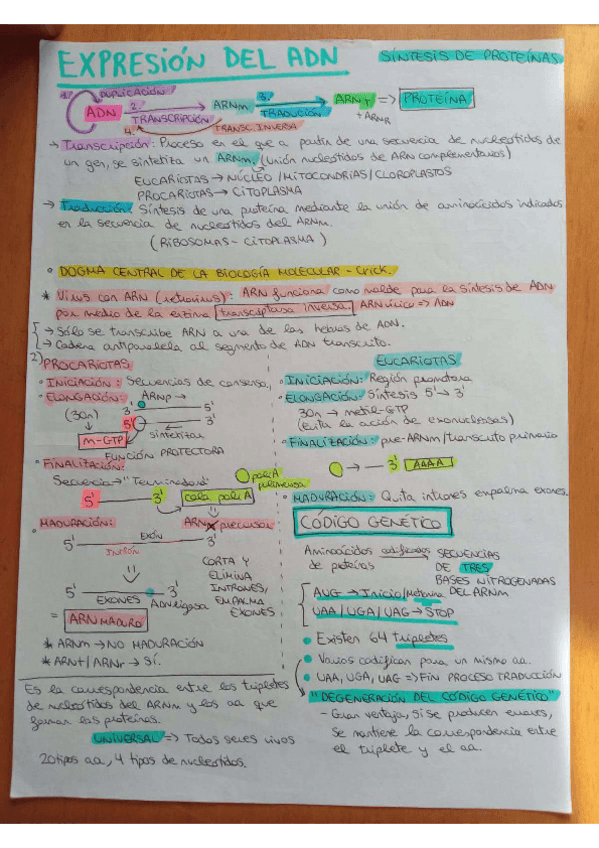 EXPRESIÓN DEL ADN
SÍNTESIS DE PROTEÍNAS
1. DUPLICACIÓN
ADN 2. TRANSCRIPCIÓN ARNm 3. TRADUCIÓN ARNt => PROTEÍNA
+ ARNR
4. TRANSC. INVERSA
→ Transcripción: Proceso en el que a partir de una secuencia de nucleótidos de
un gen, se sintetiza un ARNm. (Unión nucleótidos de ARN complementarios)
EUCARIOTAS → NÚCLEO / MITOCONDRIAS / CLOROPLASTOS
PROCARIOTAS → CITOPLASMA
→ Traducción: Síntesis de una proteína mediante la unión de aminoácidos indicados
en la secuencia de nucleótidos del ARNm.
(RIBOSOMAS - CITOPLASMA)
DOGMA CENTRAL DE LA BIOLOGÍA MOLECULAR - Crick.
* Virus con ARN (retrovirus): ARN funciona como molde para la síntesis de ADN
por medio de la enzima transcriptasa inversa ARN vírico => ADN
→ Sólo se transcribe ARN a una de las hebras de ADN.
→ Cadena antiparalela al segmento de ADN transcrito.
2) PROCARIOTAS:
INICIACIÓN: Secuencias de consenso,
ELONGACIÓN: ARNp →
(30n) 3' 5'
5' 3'
m-GTP sintetizar
FUNCIÓN PROTECTORA
FINALITACIÓN:
Secuencia → "Terminadora"
poliA polimerasa
5' 3' cola poli A
MADURACIÓN: ARNm precursor
5' EXÓN 3'
INTRÓN
5' 3'
EXONES ADN ligasa
CORTA Y
ELIMINA
INTRONES,
EMPALMA
EXONES
= ARN MADURO
* ARNm → NO MADURACIÓN
* ARNt / ARNr → SÍ.
Es la correspondencia entre los tripletes
de nucleótidos del ARNm y los aa que
forman las proteínas.
UNIVERSAL => Todos seres vivos
20 tipos aa, 4 tipos de nucleótidos.
EUCARIOTAS
INICIACIÓN: Región promotora
ELONGACIÓN: Síntesis 5' → 3'
30n → metil-GTP
(evita la acción de exonucleasas)
FINALITACIÓN: pre-ARNm / transcrito primario
→ 3' AAAA
MADURACIÓN: Quita intrones empalma exones.
CÓDIGO GENÉTICO
Aminoácidos codificados SECUENCIAS
de proteínas DE TRES
BASES NITROGENADAS
DEL ARNm
AUG → Inicio/Metionina
UAA / UGA / UAG → STOP
Existen 64 tripletes
Varios codifican para un mismo aa.
UAA, UGA, UAG => FIN PROCESO TRADUCCIÓN
"DEGENERACIÓN DEL CÓDIGO GENÉTICO"
- Gran ventaja, si se producen errores,
se mantiene la correspondencia entre
el triplete y el aa.